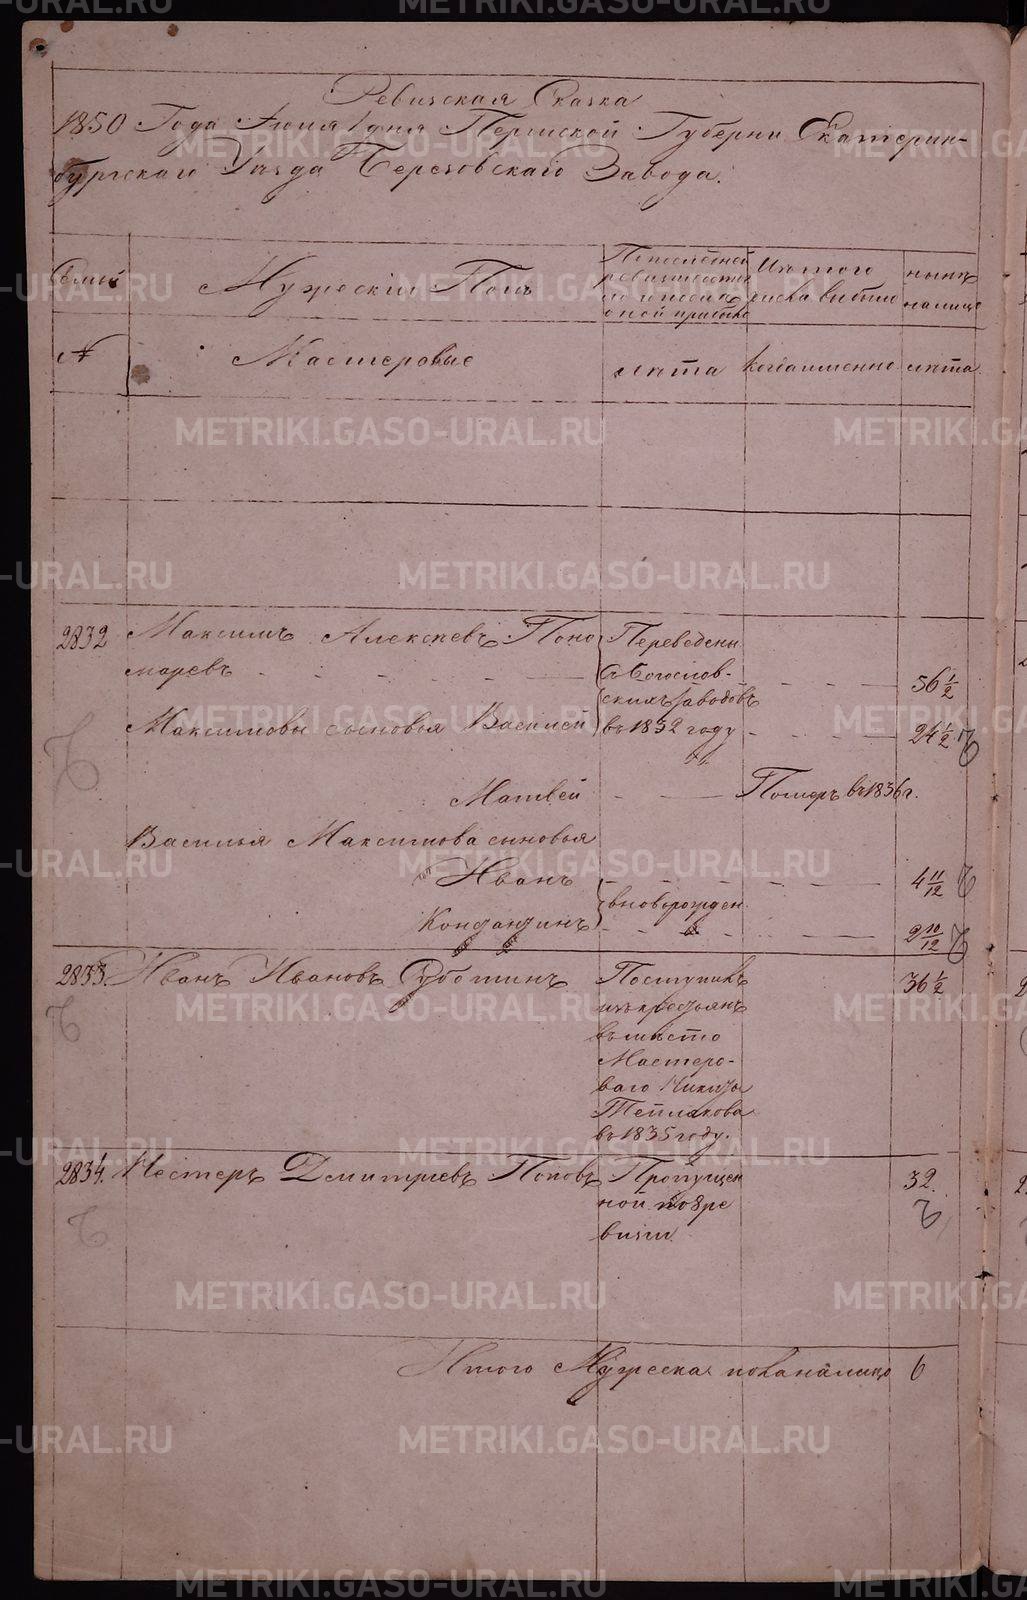 Ревизская Сказка
1850 Года Июня 1 дня Пермской Губернии Екатерин-
бургскаго Уезда Березовскаго Завода.
Семьи
Мужеский Полъ
По последней
ревизии состо
яло и после
оной прибыло
Изъ того
числа выбыло
ныне
на лицо
№
Мастеровые
лета
когда именно
лета
2832
Максимъ Алексеевъ Поно
маревъ
Переведены
съ Богослов-
скихъ заводовъ
въ 1832 году
56 1/2
Максимовы сыновья Василей
24 1/2
Матвей
Померъ въ 1836 г.
Василья Максимова сыновья
1й Иванъ
вновьрожден
4 11/12
Кондандинъ
2 10/12
2833.
Иванъ Ивановъ Суботинъ
Поступилъ
изъ крестьянъ
въ место
Мастеро-
ваго Никиты
Теплякова
въ 1835 году.
36 1/2
2834.
Нестеръ Дмитриевъ Поповъ
Пропущен
ной по 8 ре
визии
32.
Итого Мужеска пола налицо 6
METRIKI.GASO-URAL.RU